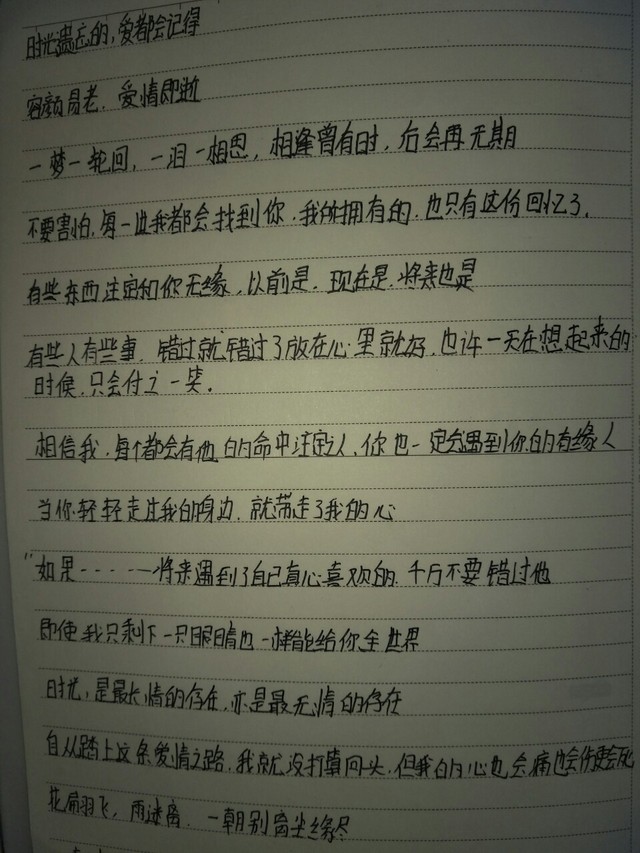 时光遗忘的，爱都会记得
容颜易老，爱情即逝
一梦一轮回，一泪一相思，相逢曾有时，后会再无期
不要害怕，每一世我都会找到你，我能拥有的，也只有这份回忆了，
有些东西注定和你无缘，以前是，现在是，将来也是
有些人有些事，错过就错过了放在心里就好，也许一天在想起来的
时候，只会付之一笑。
相信我，每个都会有他的命中注定人，你也一定会遇到你的有缘人
当你轻轻走过我的身边，就带走了我的心
"如果······将来遇到了自己真心喜欢的，千万不要错过他
即使我只剩下一只眼睛也一样能给你全世界
时光，是最长情的存在，亦是最无情的存在
自从踏上这条爱情之路，我就没打算回头，但我的心也会痛也会伤更会死
花扇羽飞，雨迷离，一朝别离尘缘尽